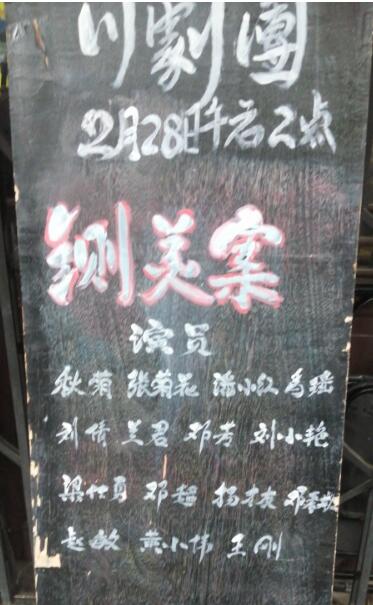 川劇團
2月28日午后2点
铡美案
演员
秋菊 张菊花 潘小红 马瑶
刘倩 兰君 邓芳 刘小艳
梁仕勇 邓超 杨才友
赵敏 黄小伟 王刚